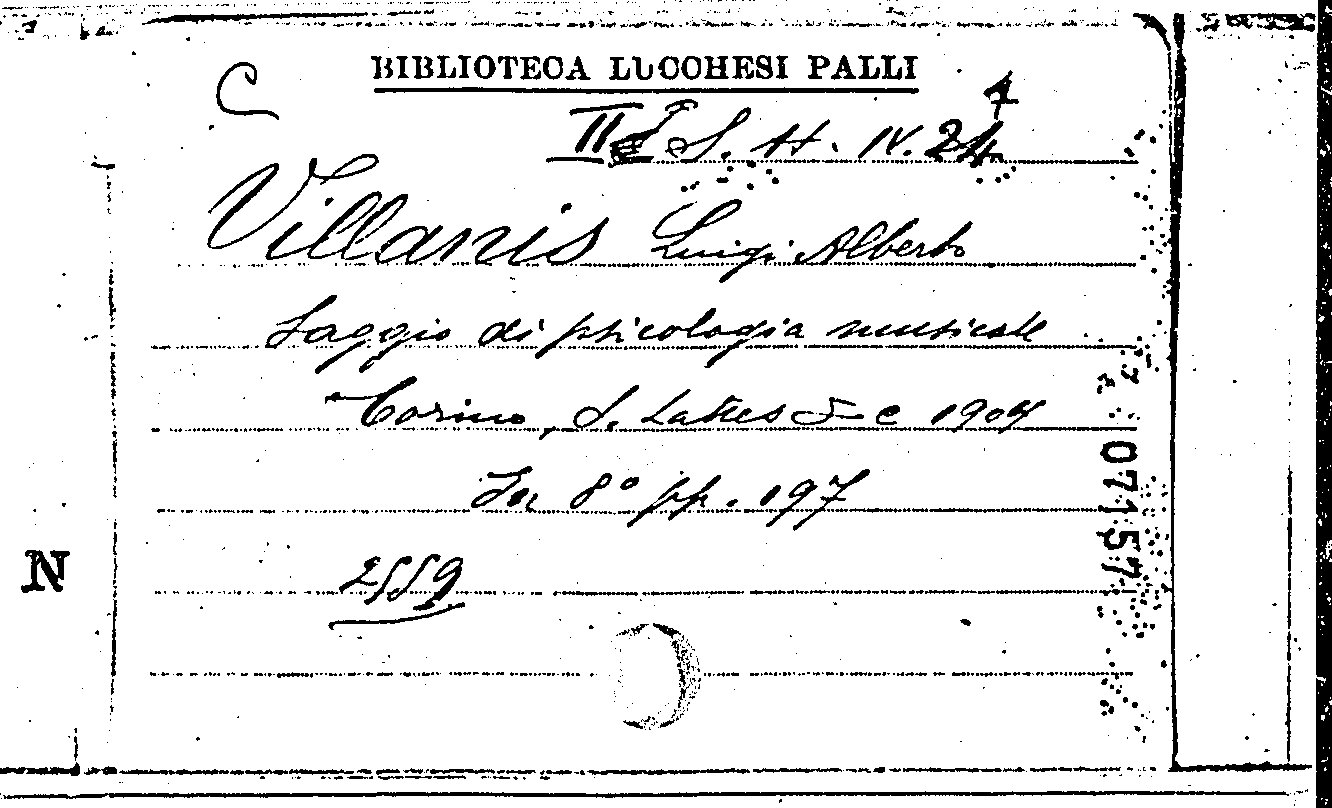 BIBLIOTECA LUCCHESI PALLI
C
II S. H. IV. 24 7
Villanis Luigi Alberto
Saggio di psicologia musicale
Torino, S. Lattes & C 1904
In 8° pp. 197
2559
N
071157